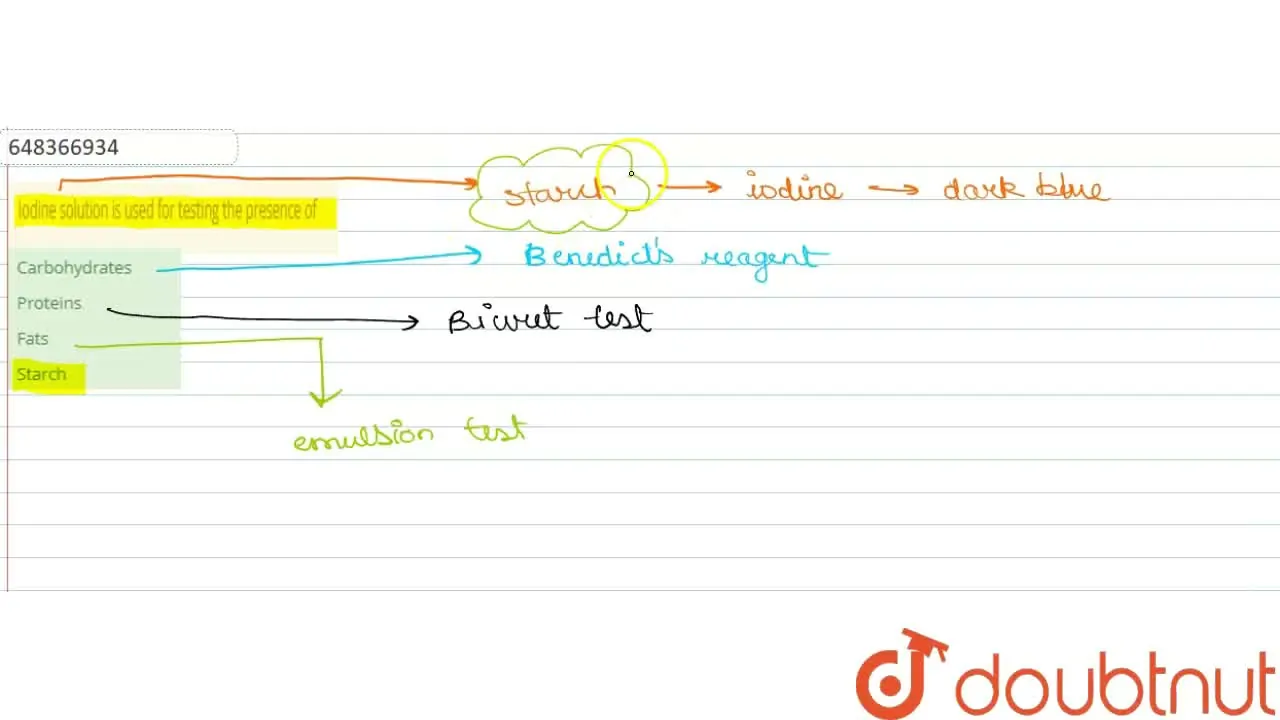 648366934
Iodine solution is used for testing the presence of
starch → iodine → dark blue
Carbohydrates → Benedict's reagent
Proteins → Biuret test
Fats
Starch
emulsion test
doubtnut